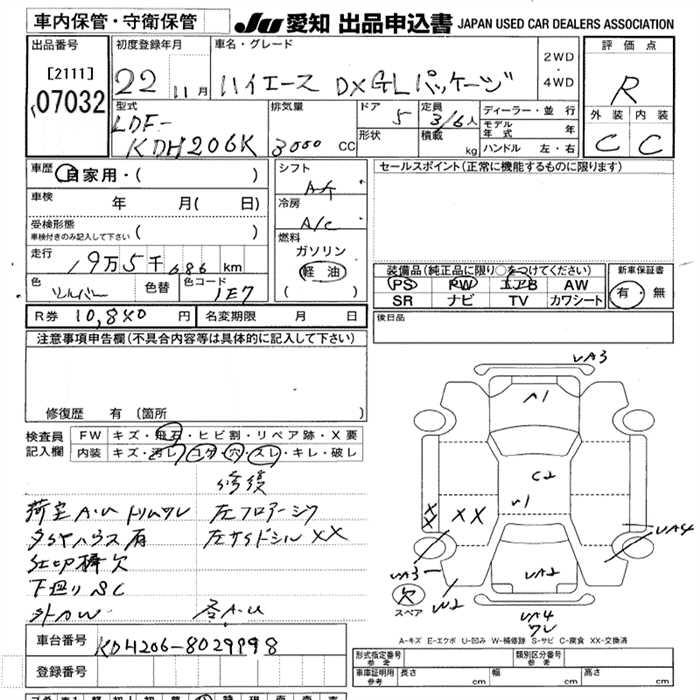 車内保管・守衛保管
JU 愛知 出品申込書 JAPAN USED CAR DEALERS ASSOCIATION
出品番号
[2111]
07032
初度登録年月
22 11月
車名・グレード
ハイエース DX GLパッケージ
2WD
・
4WD
評価点
R
外装 内装
C C
型式
LDF-
KDH206K
排気量
3000 CC
ドア
5
形状
定員
3/6人
積載 kg
ディーラー・並行
モデル年式 年
ハンドル 左・右
車歴
自家用・( )
車検
年 月( 日)
受検形態
車検付きのみ記入して下さい ( )
走行
19万5千686km
色
シルバー
色替
色コード
1E7
シフト
AT
冷房
A/C
燃料
ガソリン
軽油
( )
セールスポイント(正常に機能するものに限ります)
装備品(純正品に限り○をつけてください)
PS PW エアB AW
SR ナビ TV カワシート
新車保証書
有・無
R券 10,840 円
名変期限 月 日
後日品
注意事項申告欄(不具合内容等は具体的に記入して下さい)
修復歴 有 〔箇所 〕
検査員
記入欄
FW キズ・飛石・ヒビ割・リペア跡・X要
内装 キズ・汚レ・コゲ・穴・スレ・キレ・破レ
修復
荷室A・U トリムスレ 左フロアーシワ
タイヤハウス有 左サイドシル XX
下廻りSC
外カW
A1
C2
W1
UA2
UA3
XX
XX
UA3
W2
UA4
UA4
ワレ
欠
スペア
A-キズ E-エクボ U-凹み W-補修跡 S-サビ C-腐食 XX-交換済
車台番号
KDH206-8029998
登録番号
形式指定番号
参考
類別区分番号
参考
車庫証明用
参考
長さ cm 幅 cm 高さ cm